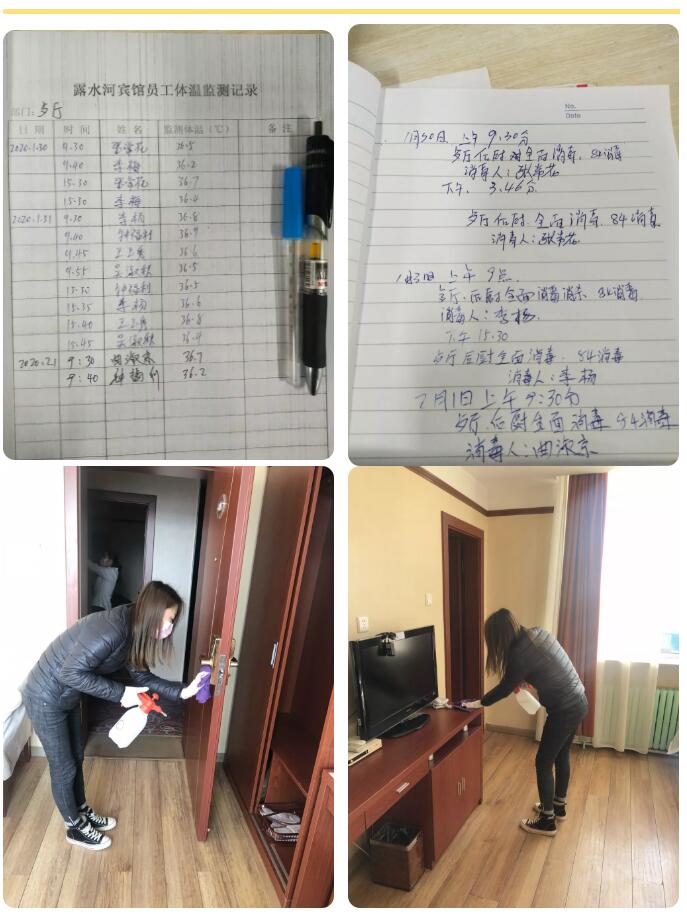 露水河宾馆员工体温监测记录
部门: 餐厅
日期 时间 姓名 监测体温(℃) 备注
2020.1.30 9.30 36.5
9.40 李梅 36.2
15.30 36.7
15.30 李梅 36.4
2020.1.31 9.30 李杨 36.8
9.40 钟福利
9.45 36.6
9.55 36.5
15.30 钟福利 36.5
15.35 李杨 36.6
15.40 36.8
15.45 36.4
2020.2.1 9:30 曲淑京 36.7
9:40 36.2
No.
Date
1月30日 上午 9.30分
歺厅 后厨 全面消毒. 84消毒
消毒人:
下午. 3.40分
歺厅 后厨. 全面消毒. 84消毒
消毒人:
上午 9点.
歺厅. 后厨全面消毒 84消毒.
消毒人: 李杨.
下午 15.30
歺厅 后厨全面消毒. 84消毒
消毒人: 李杨
2月1日 上午 9:30分
歺厅. 后厨全面消毒 84消毒
消毒人: 曲淑京